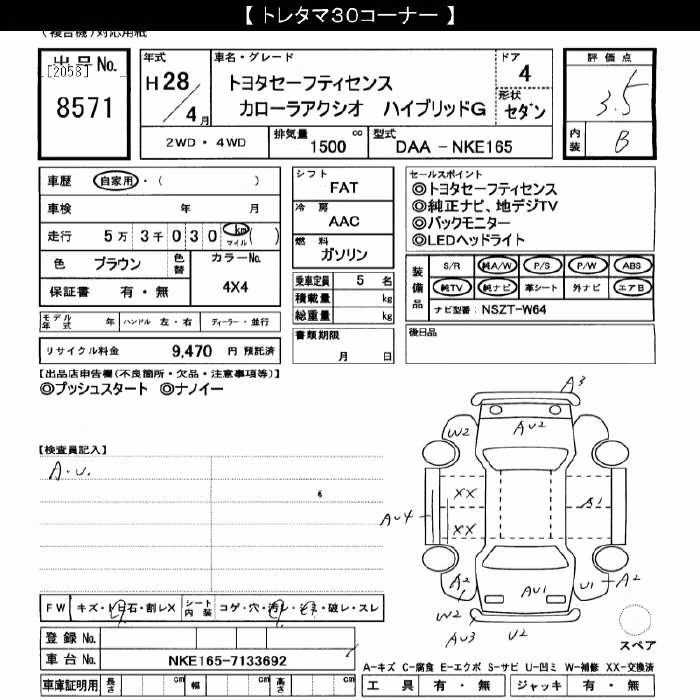 【 トレタマ30コーナー 】
(複合機)対応用紙
出品No. [2058] 8571
年式 H28/4月
車名・グレード
トヨタセーフティセンス
カローラアクシオ ハイブリッドG
ドア 4
形状 セダン
評価点 3.5
内装 B
2WD・4WD 排気量 1500 cc 型式 DAA-NKE165
車歴 自家用・( )
車検 年 月
走行 5万3千030 km マイル ( )
色 ブラウン 色替 カラーNo. 4X4
保証書 有・無
モデル年式 年 ハンドル 左・右 ディーラー・並行
リサイクル料金 9,470 円 預託済
シフト FAT
冷房 AAC
燃料 ガソリン
乗車定員 5 名
積載量 kg
総重量 kg
書類期限 月 日
セールスポイント
◎トヨタセーフティセンス
◎純正ナビ、地デジTV
◎バックモニター
◎LEDヘッドライト
装備品 S/R 純A/W P/S P/W ABS
純TV 純ナビ 革シート 外ナビ エアB
ナビ型番: NSZT-W64
後日品
【出品店申告欄(不良箇所・欠品・注意事項等)】
◎プッシュスタート ◎ナノイー
【検査員記入】
A・U.
A3
W2 AU2
XX A1
AU4 XX
A2 AU1 U1 A2
W2
AU3 U2
スペア
FW キズ・トビ石・割レX シート内装 コゲ・穴・汚レ・シミ・破レ・スレ
登録No.
車台No. NKE165-7133692
車庫証明用 長さ cm 幅 cm 高さ cm
A-キズ C-腐食 E-エクボ S-サビ U-凹ミ W-補修 XX-交換済
工具 有・無 ジャッキ 有・無